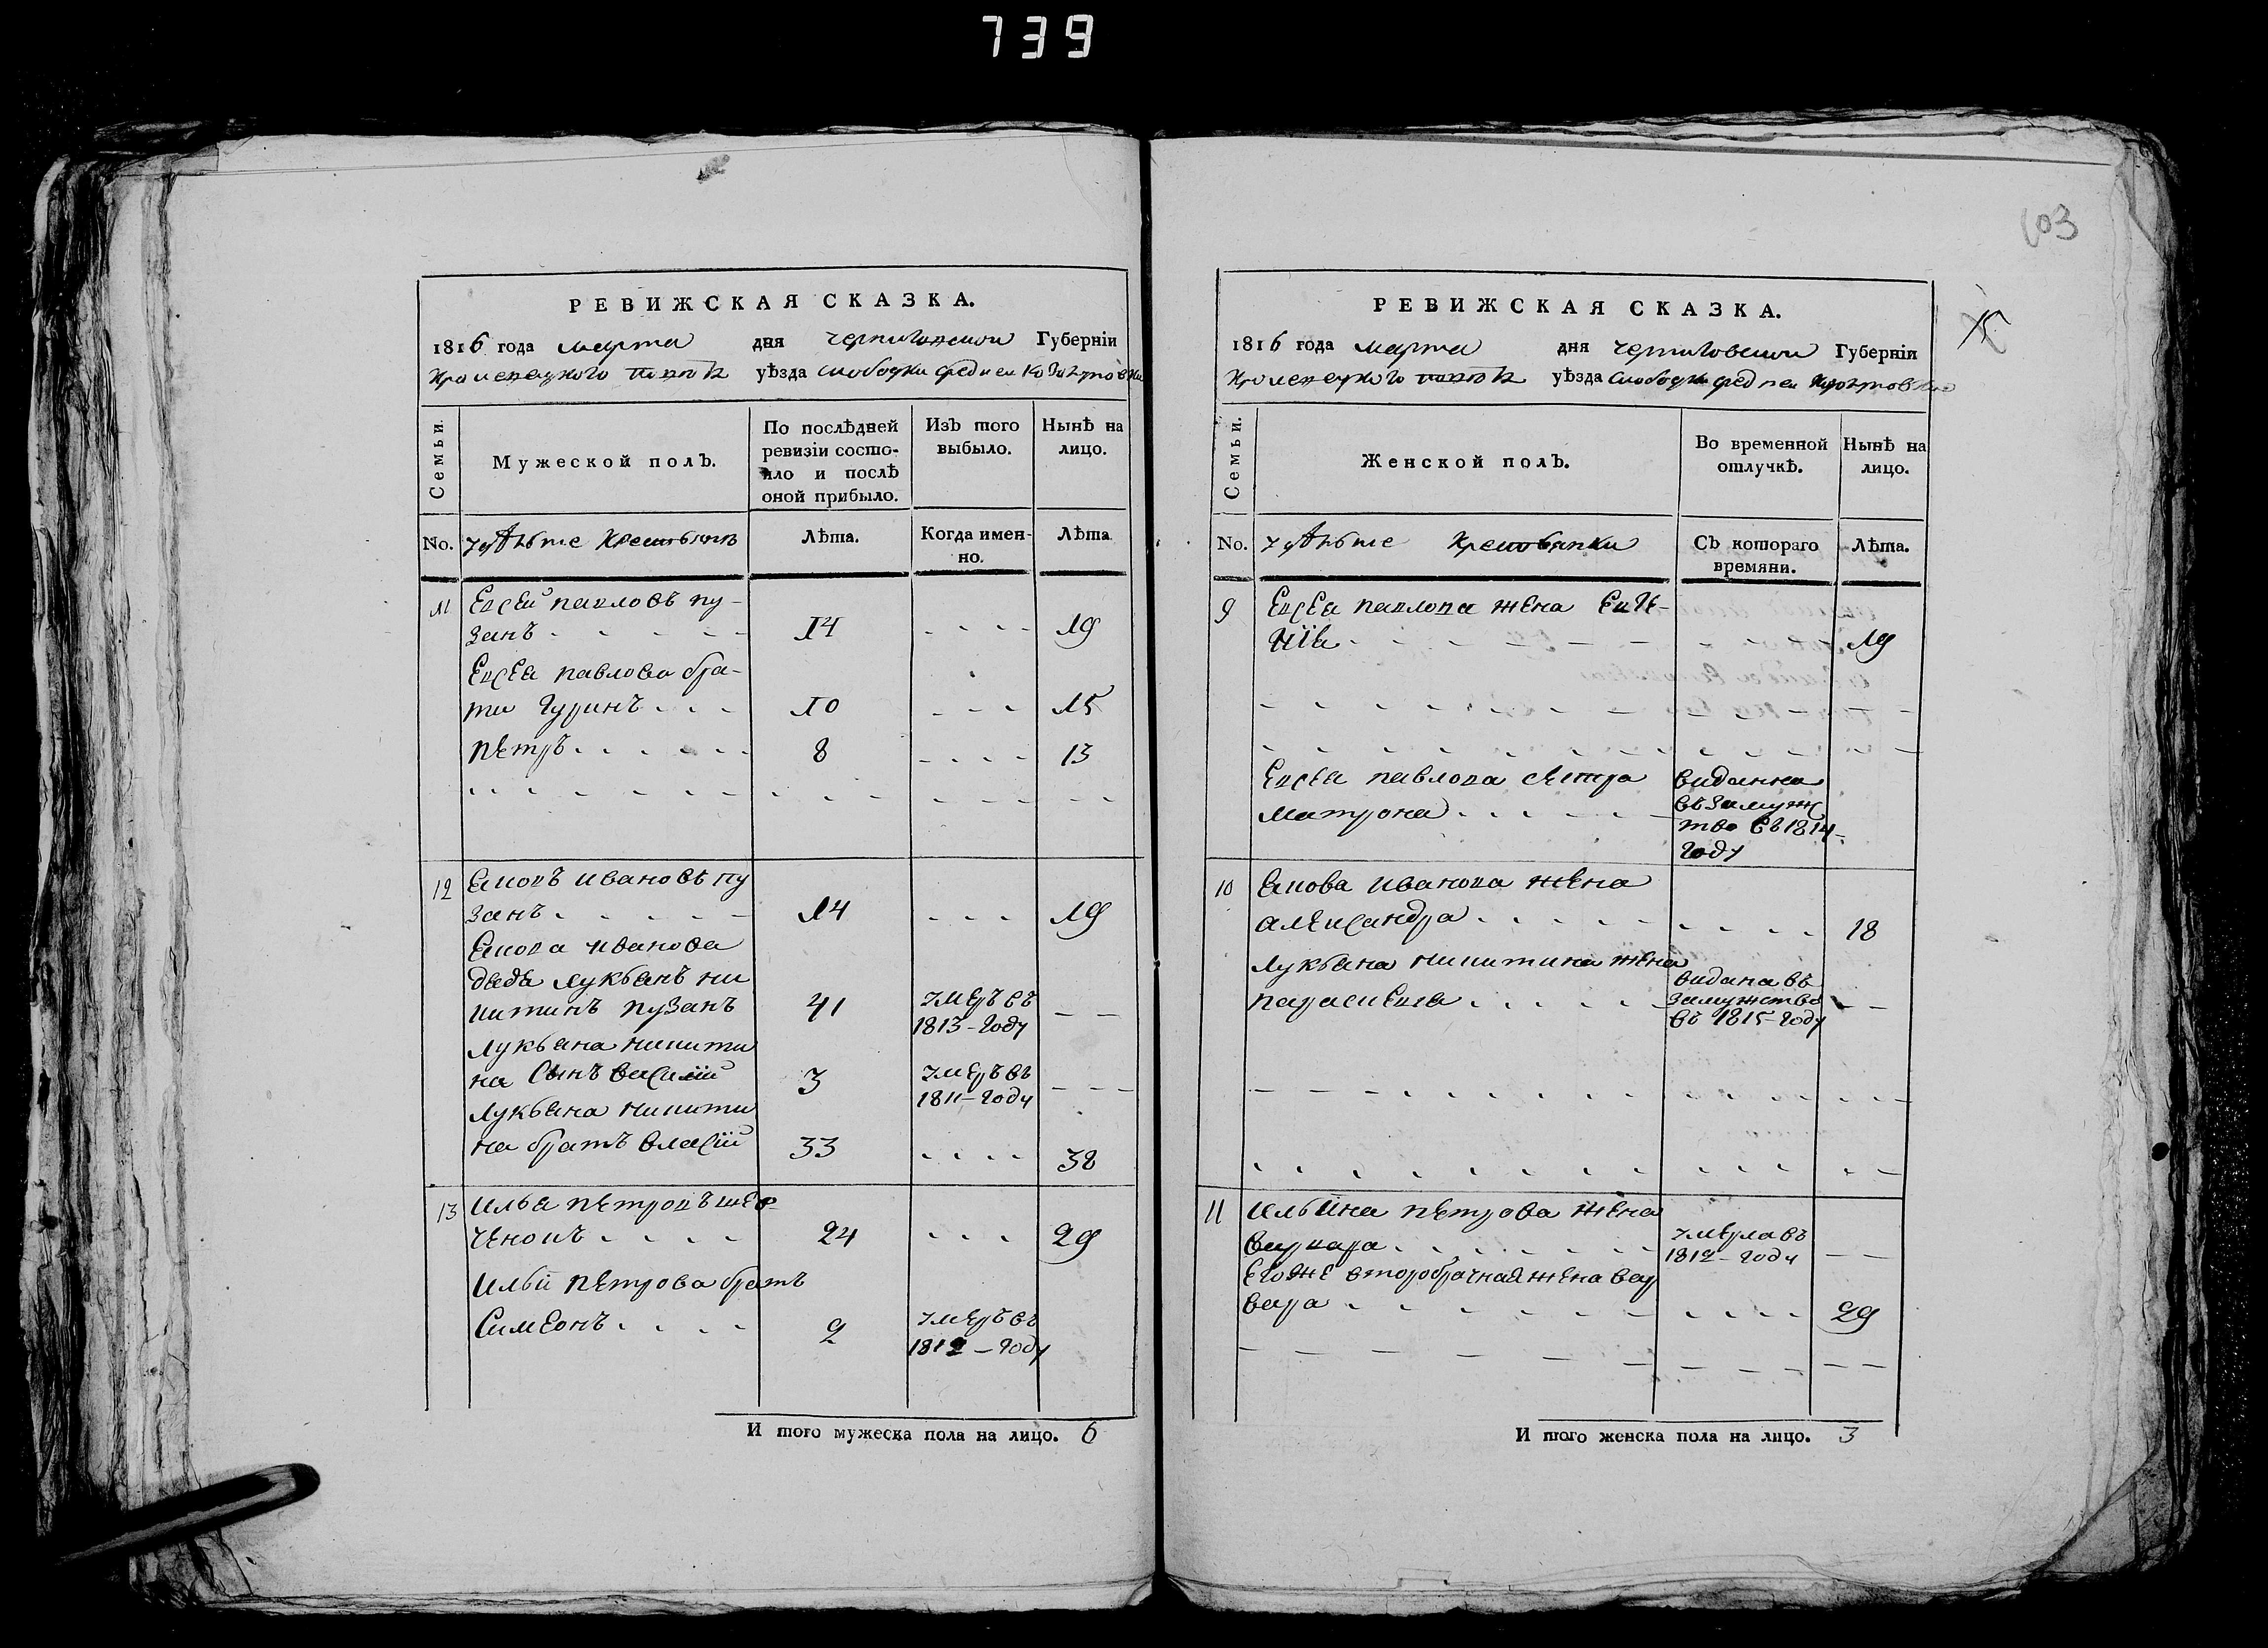 739
103
15
РЕВИЖСКАЯ СКАЗКА.
1816 года марта дня черниговской Губернїи
уѣзда слободки средней
Семьи.
Мужеской полЪ.
По послѣдней ревизїи состояло и послѣ оной прибыло.
ИзЪ того выбыло.
Нынѣ на лицо.
No.
Лѣта.
Когда именно.
Лѣта
11 Евсей павловъ пу-
занъ 14 19
Евсея павлова бра-
ти Гуринъ 10 15
петръ 8 13
12 Яковъ ивановъ пу
занъ 14 19
Якова иванова
дядя лукьянъ ни
китинъ пузанъ 41 умеръ въ 1813-году
лукьяна никити
на сынъ василїй 3 умеръ въ 1811-году
лукьяна никити
на братъ власїй 33 38
13 илья петровъ шев
ченокъ 24 29
ильи петрова братъ
симеонъ 2 умеръ въ 1812-году
И того мужеска пола на лицо. 6
РЕВИЖСКАЯ СКАЗКА.
1816 года марта дня черниговской Губернїи
уѣзда слободки средней
Семьи.
Женской полЪ.
Во временной отлучкѣ.
Нынѣ на лицо.
No.
крестьянки
СЪ котораго времяни.
Лѣта.
9 Евсея павлова жена
19
Евсея павлова сестра
матрона
видання
въ замуж
тво въ 1814-
году
10 Якова иванова жена
александра 18
лукьяна никитина жена
парасковия
видана въ
замужство
въ 1815-году
11 ильина петрова жена
варвара умерла въ 1812-году
егоже второбрачная жена вар
вара 29
И того женска пола на лицо. 3